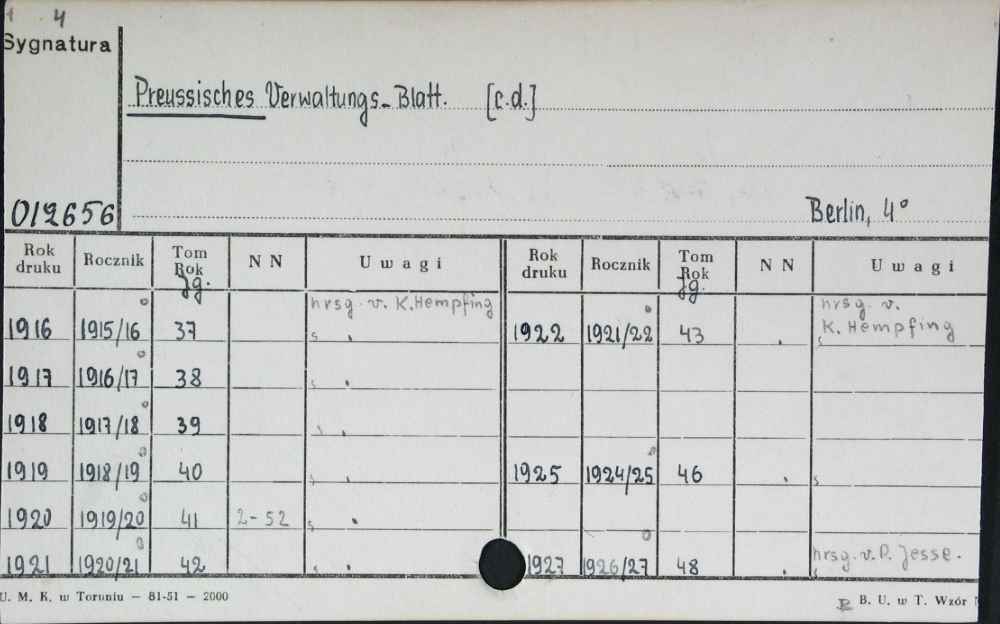 4
Sygnatura
Preussisches Verwaltungs-Blatt. [c.d.]
012656
Berlin, 4°
Rok druku Rocznik Tom Rok Jg. N N Uwagi Rok druku Rocznik Tom Rok Jg. N N Uwagi
1916 1915/16 37 hrsg. v. K. Hempfing 1922 1921/22 43 hrsg. v. K. Hempfing
1917 1916/17 38
1918 1917/18 39
1919 1918/19 40 1925 1924/25 46
1920 1919/20 41 2-52
1921 1920/21 42 1927 1926/27 48 hrsg. v. P. Jesse.
U. M. K. w Toruniu — 81-51 — 2000
B. U. w T. Wzór